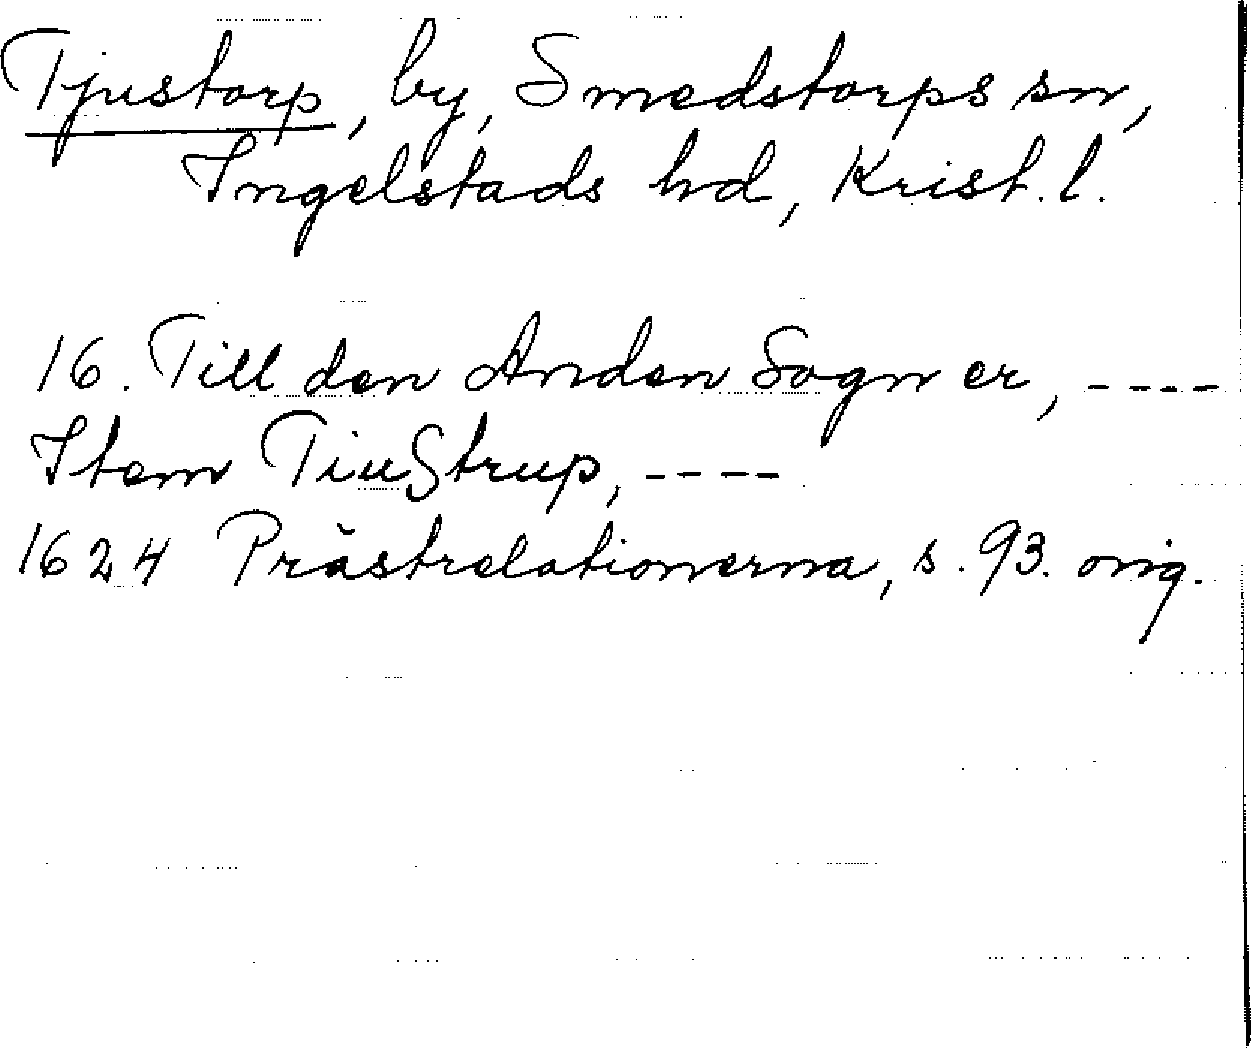 Tjustorp, by, Smedstorps sn,
Ingelstads hd, Krist. l.
16. Till den Anden Sogn er, ----
Item TiuStrup, ----
1624 Prästrelationerna, s. 93. orig.